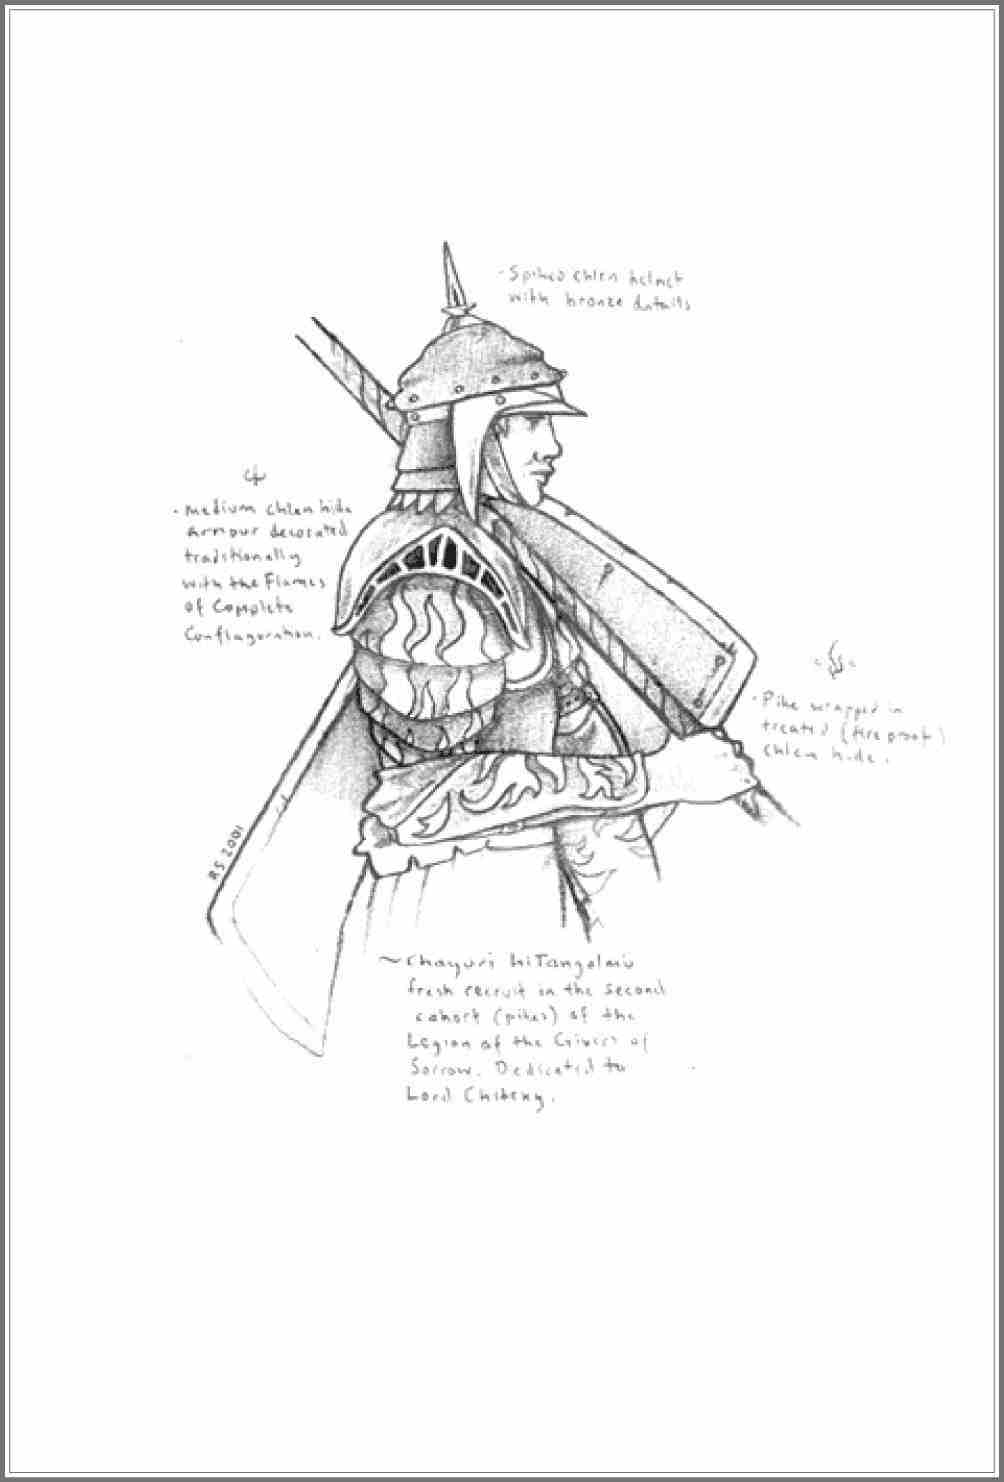 · Spiked chlen helmet
with bronze details
· Medium chlen hide
Armour decorated
traditionally
with the Flames
of Complete
Conflaguration.
· Pike wrapped in
treated (fire proof)
chlen hide.
RS 2001
~ Chayuri hiTangolmü
fresh recruit in the second
cohort (pikes) of the
Legion of the Givers of
Sorrow. Dedicated to
Lord Chiteng.